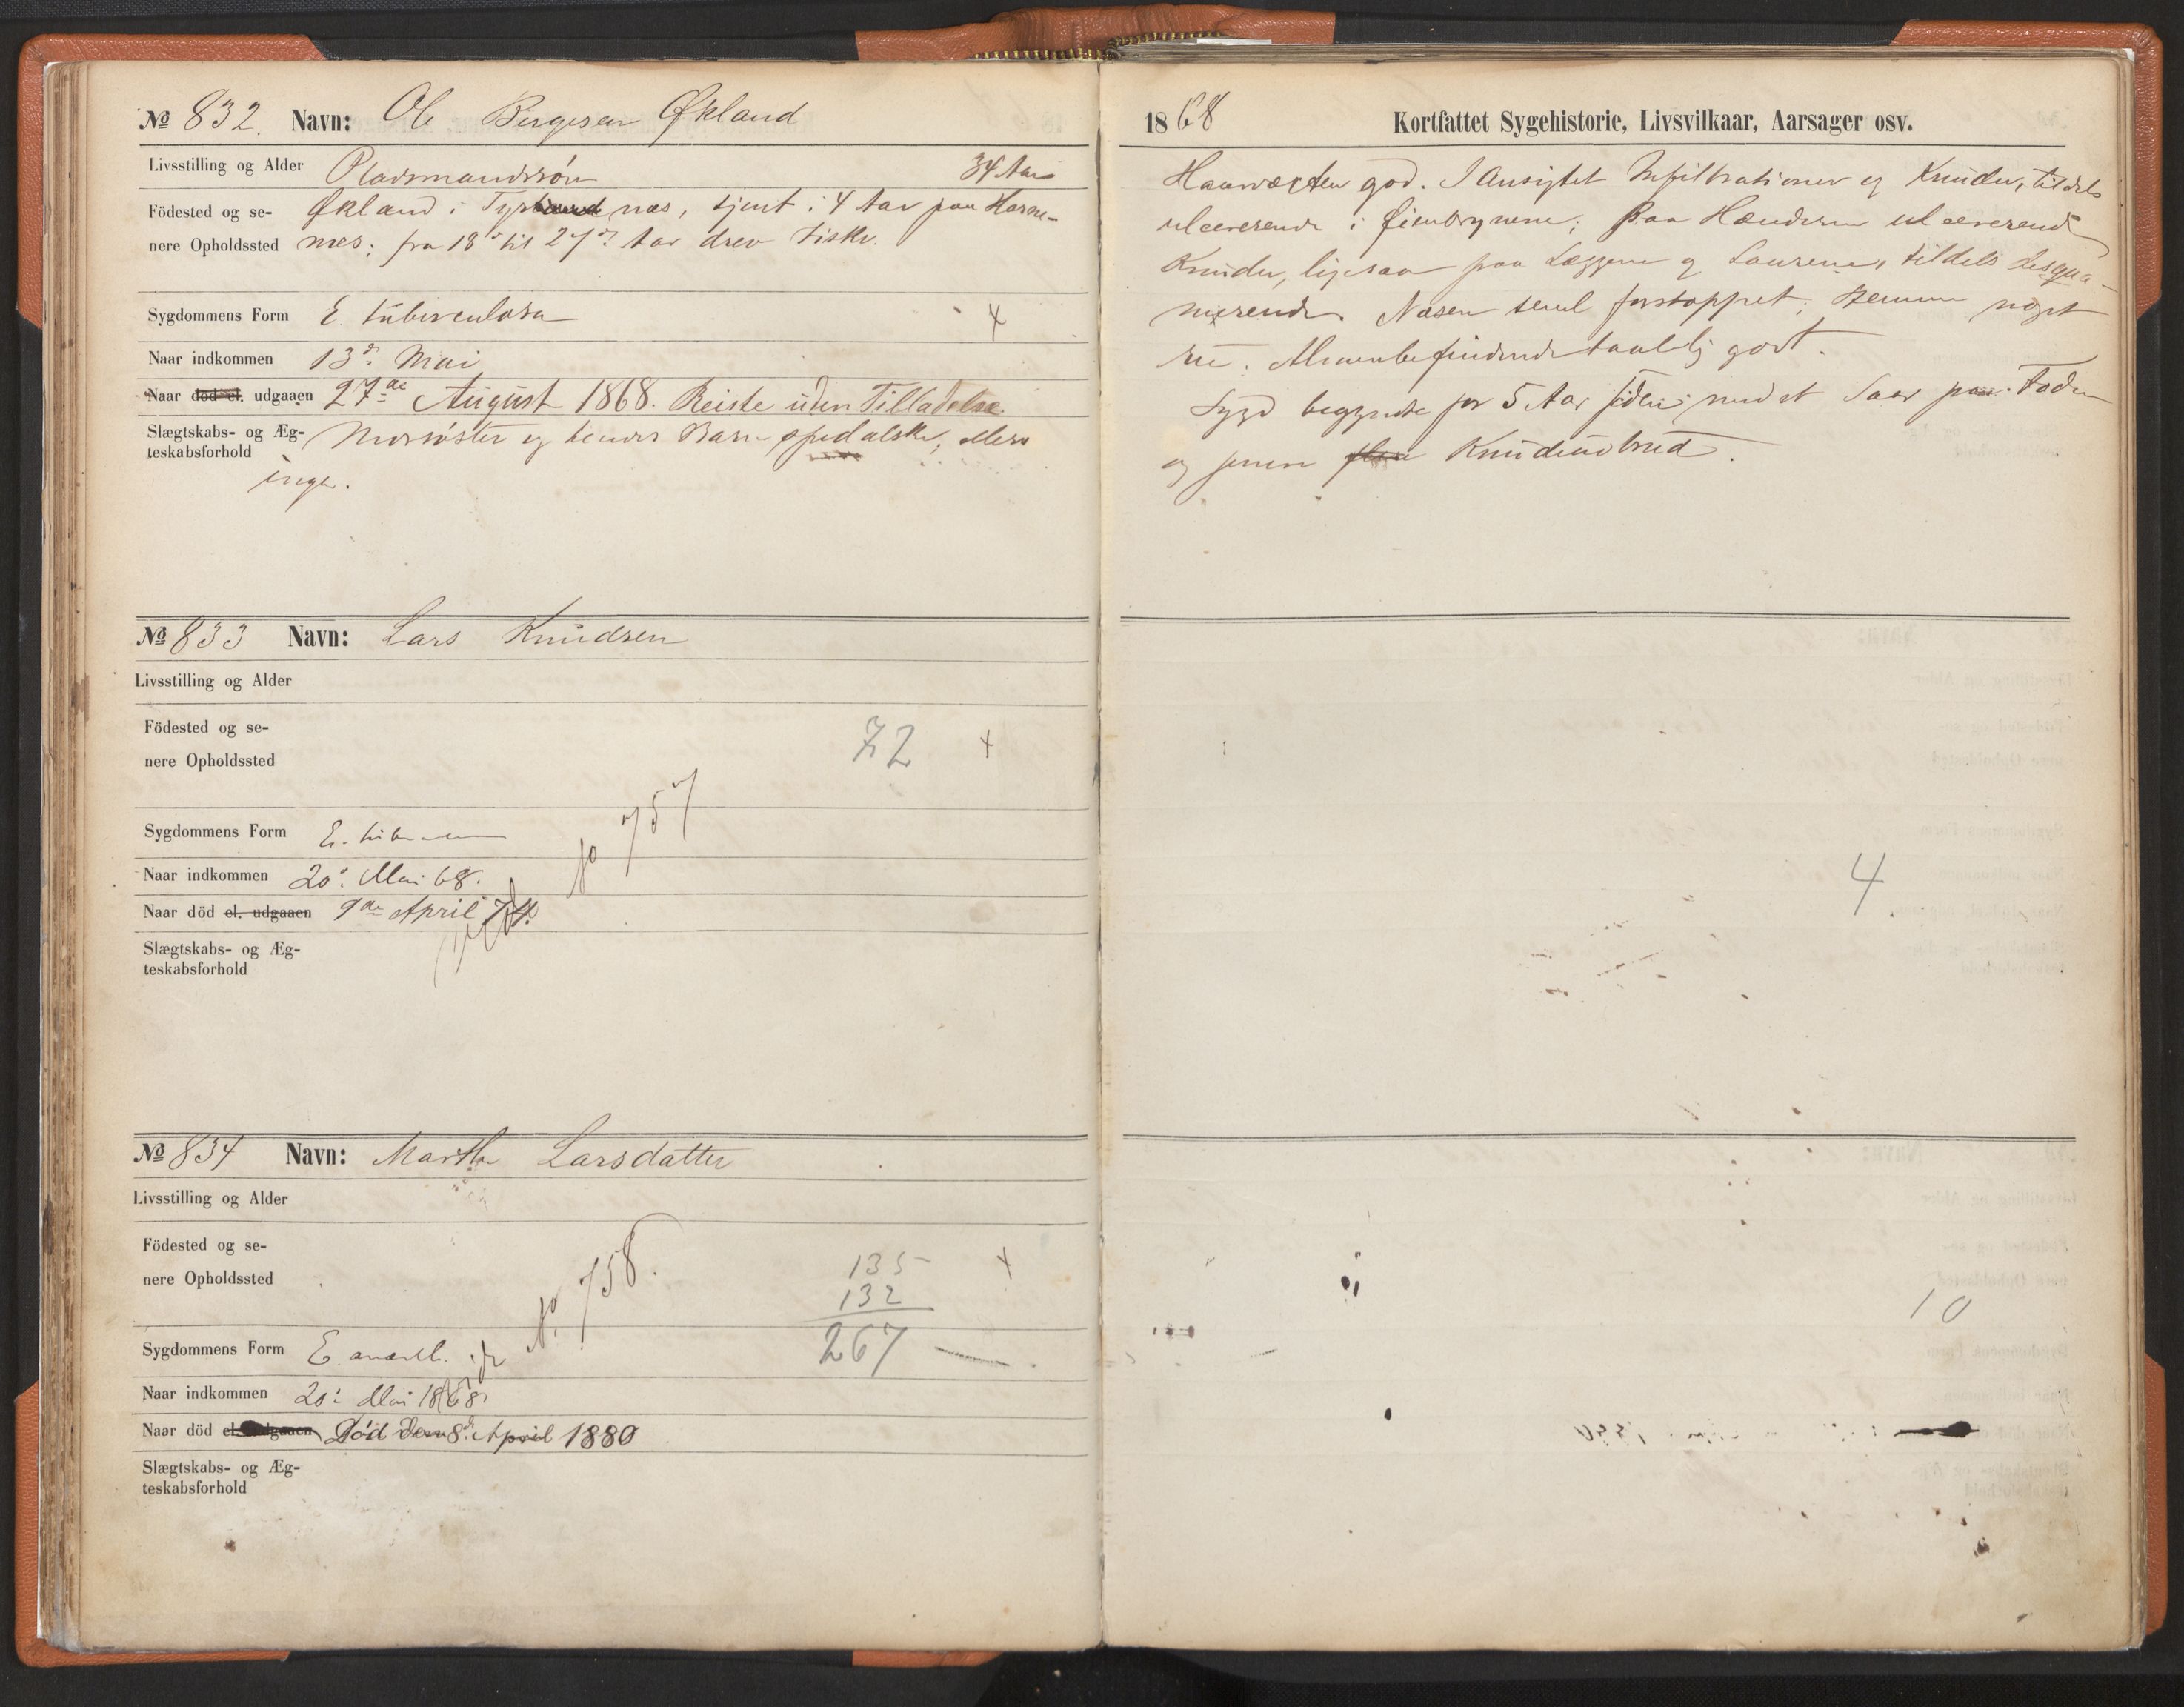 № 832. Navn: Ole Bergesen Økland
Livsstilling og Alder Pladsmandssön 34 Aar
Födested og se- Økland i Tysnæs, tjent i 4 Aar paa
nere Opholdssted fra 18de til 27de Aar drev Fiskr.
Sygdommens Form E. tuberculosa 4
Naar indkommen 13de Mai
Naar död el. udgaaen 27de August 1868. Reiste uden Tilladelse.
Slægtskabs- og Æg- Morsöster og hendes Barn spedalske, ellers
teskabsforhold
ingen.
№ 833 Navn: Lars Knudsen
Livsstilling og Alder
Födested og se-
nere Opholdssted 72 +
Sygdommens Form E. No 757
Naar indkommen 20de Mai 68.
Naar död el. udgaaen 9de April 74.
Slægtskabs- og Æg-
teskabsforhold
№ 834 Navn: Martha Larsdatter
Livsstilling og Alder
Födested og se- 135 +
nere Opholdssted No. 758. 132
Sygdommens Form E. anæsth. 267
Naar indkommen 20de Mai 1868.
Naar död el. udgaaen Död den 8de April 1880
Slægtskabs- og Æg-
teskabsforhold
1868 Kortfattet Sygehistorie, Livsvilkaar, Aarsager osv.
Haarvæxten god. I Ansigtet Infiltrationer og Knuder, tildels
ulcererende i Øienbrynene; paa Hænderne ulcererende
Knuder, ligesaa paa Læggene og Laarene, tildels desqua-
merende. Næsen forstoppet; Stemmen noget
Almenbefindende taalelig godt.
Sygd. begyndte for 5 Aar siden med et Saar paa Foden
og senere Knudeudbrud.
4
10